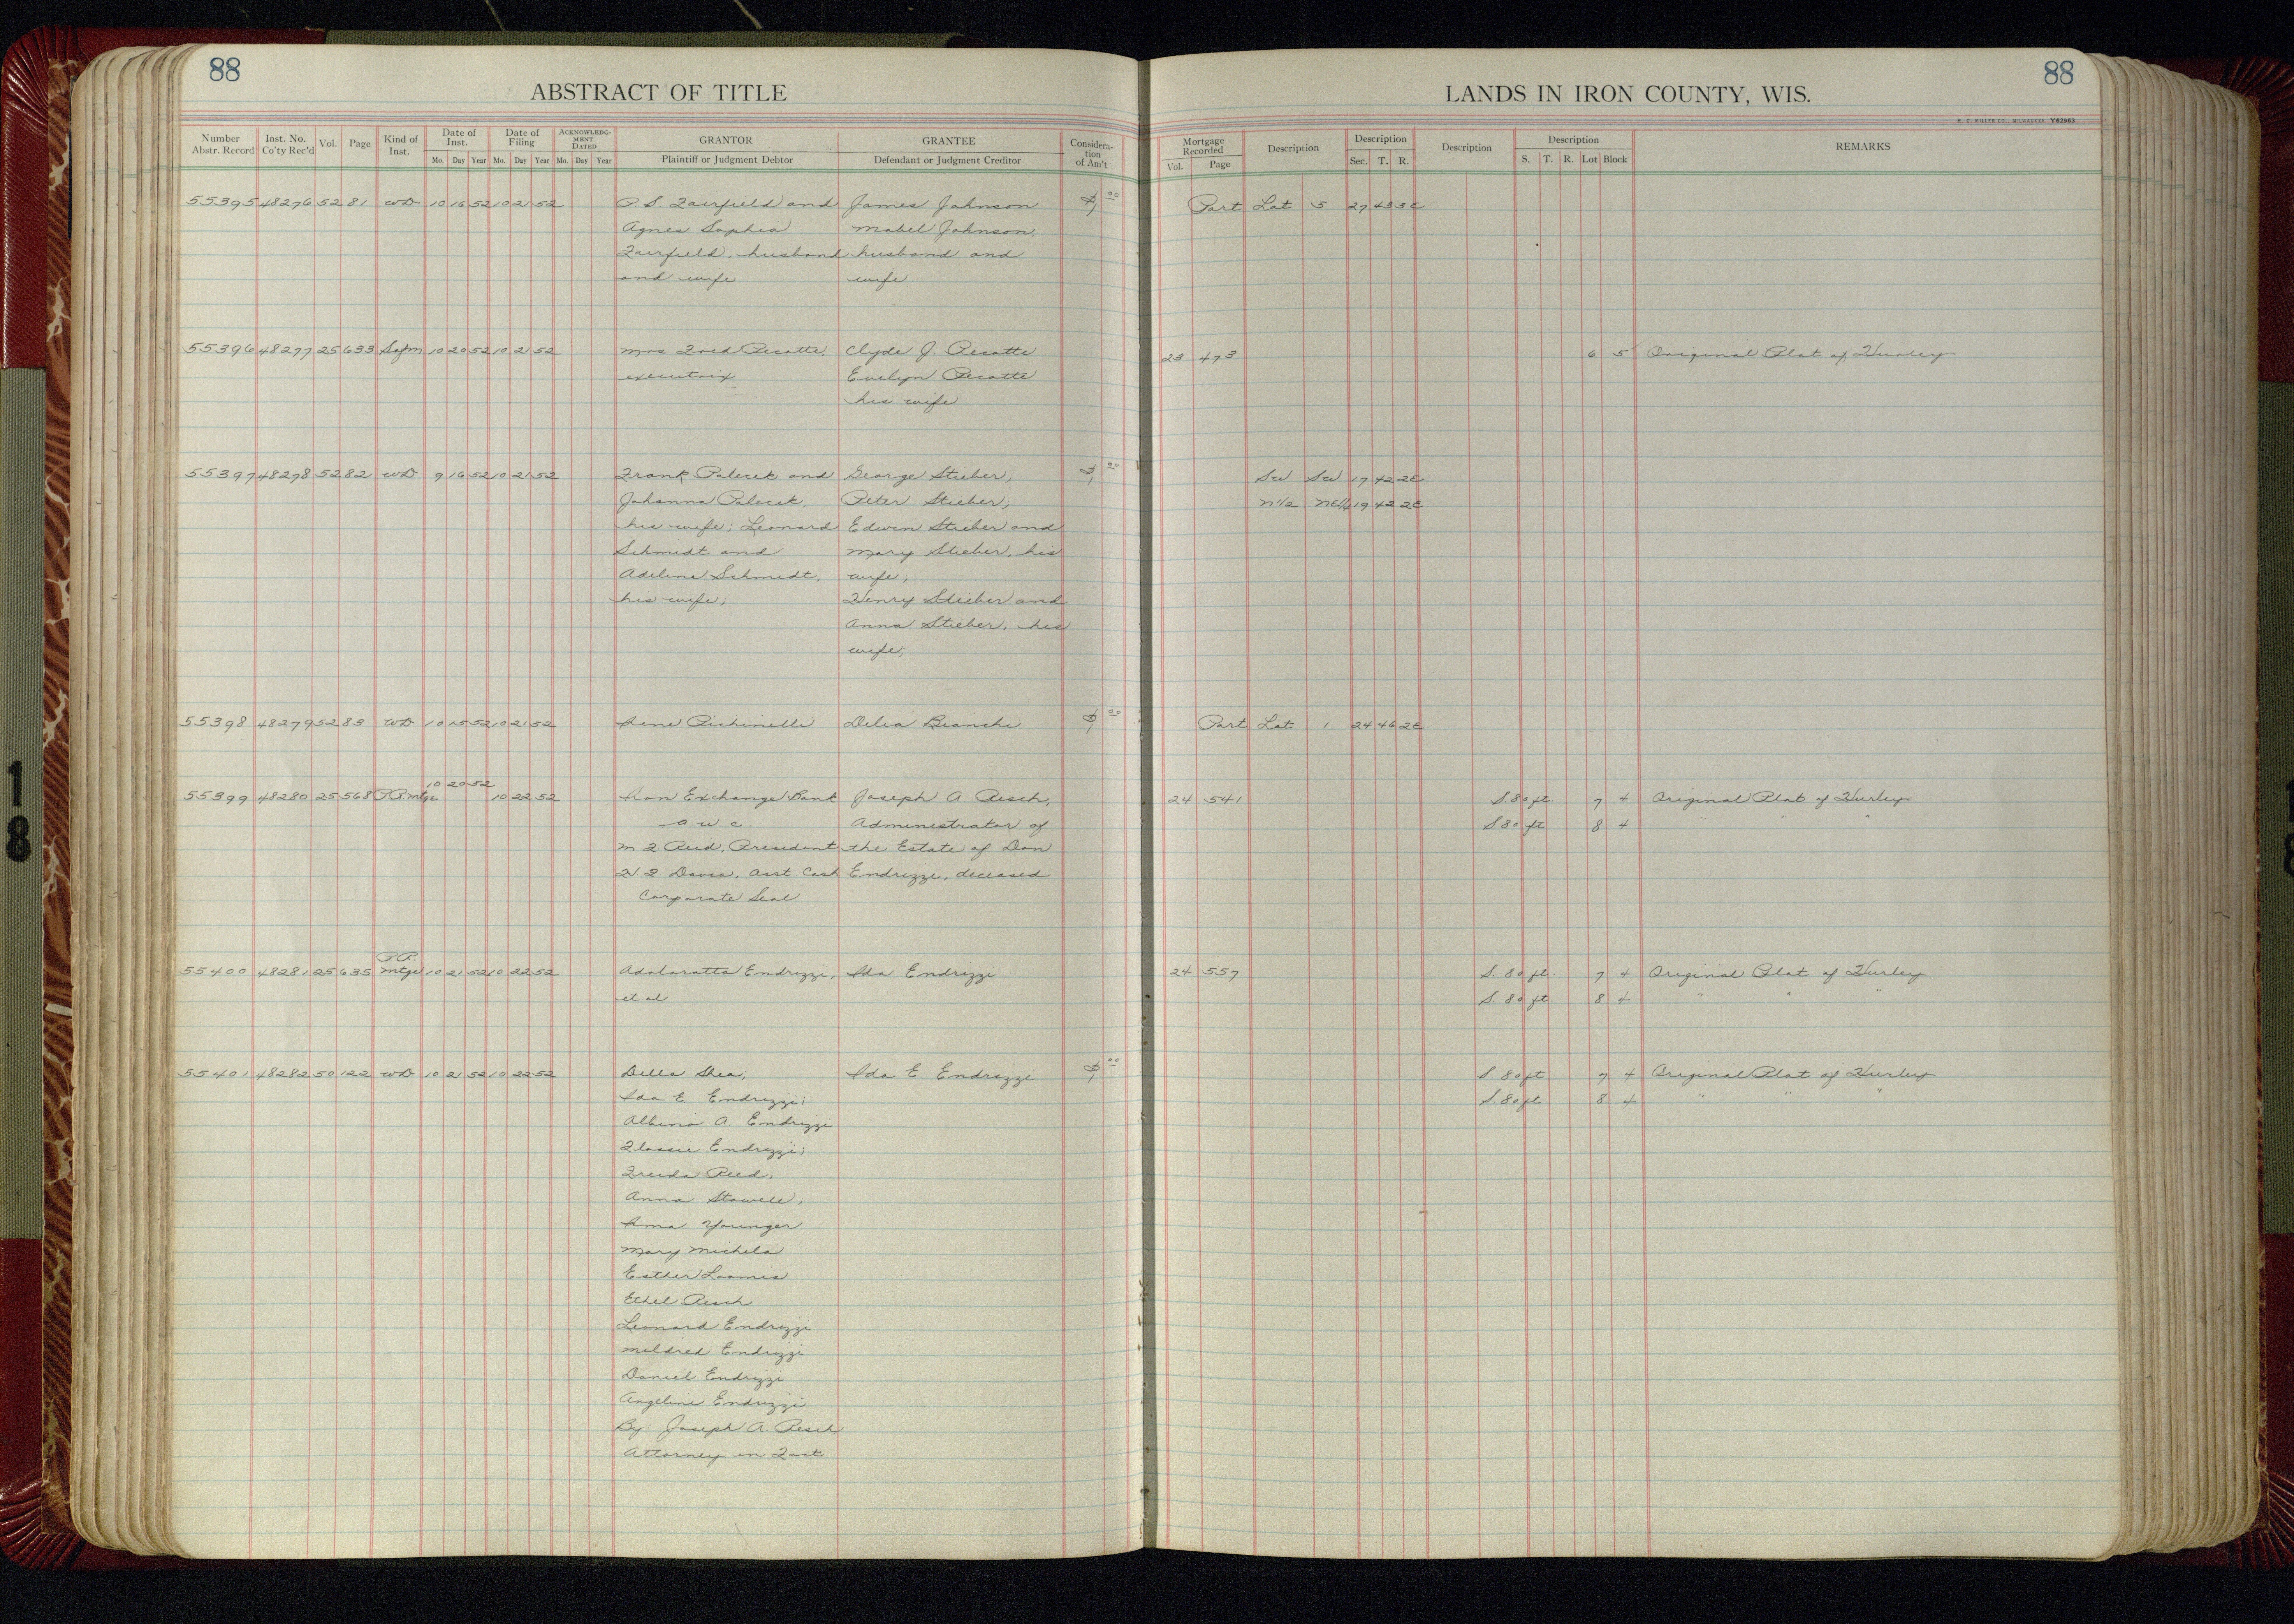 88
ABSTRACT OF TITLE
Number Abstr. Record Inst. No. Co'ty Rec'd Vol. Page Kind of Inst. Date of Inst. Mo. Day Year Date of Filing Mo. Day Year ACKNOWLEDGMENT DATED Mo. Day Year GRANTOR Plaintiff or Judgment Debtor GRANTEE Defendant or Judgment Creditor Consideration of Am't
55395 48276 52 81 WD 10 16 52 10 21 52 P. S. Fairfield and James Johnson $1 00
Agnes Sophia Mabel Johnson,
Fairfield, husband husband and
and wife wife
55396 48277 25 633 Satm 10 20 52 10 21 52 Mrs Fred Pecotte, Clyde J Pecotte
executrix Evelyn Pecotte
his wife
55397 48278 52 82 WD 9 16 52 10 21 52 Frank Palecek and George Stieber; $1 00
Johanna Palecek, Peter Stieber;
his wife; Leonard Edwin Stieber and
Schmidt and Mary Stieber, his
Adeline Schmidt, wife;
his wife; Henry Stieber and
Anna Stieber, his
wife;
55398 48279 52 83 WD 10 15 52 10 21 52 Irene Pichinelli Delia Bianchi $1 00
10 20 52
55399 48280 25 568 P R mtge 10 22 52 Iron Exchange Bank Joseph A. Resch,
a w c Administrator of
M F Reid, President the Estate of Dan
H F Davis, Asst Cash Endrizzi, deceased
Corporate Seal
P R
55400 48281 25 635 mtge 10 21 52 10 22 52 Endrizzi, Ida Endrizzi
et al
55401 48282 50 122 WD 10 21 52 10 22 52 Della Shea, Ida E. Endrizzi $1 00
Ida E Endrizzi;
Albina A. Endrizzi
Flossie Endrizzi;
Freida Reed,
Anna Stowell,
Irma Younger
Mary Michela
Esther Loomis
Ethel Resch
Leonard Endrizzi
Mildred Endrizzi
Daniel Endrizzi
Angeline Endrizzi
By: Joseph A. Resch
Attorney in Fact
88
LANDS IN IRON COUNTY, WIS.
H. C. MILLER CO., MILWAUKEE Y63963
Mortgage Recorded Vol. Page Description Description Sec. T. R. Description Description S. T. R. Lot Block REMARKS
Part Lot 5 27 43 3E
23 473 6 5 Original Plat of Hurley
SW SW 17 42 2E
N1/2 NE1/4 19 42 2E
Part Lot 1 24 46 2E
24 541 S. 80 ft. 7 4 Original Plat of Hurley
S 80 ft 8 4 " " "
24 557 S. 80 ft. 7 4 Original Plat of Hurley
S. 80 ft. 8 4 " " "
S. 80 ft 7 4 Original Plat of Hurley
S. 80 ft 8 4 " " "
18